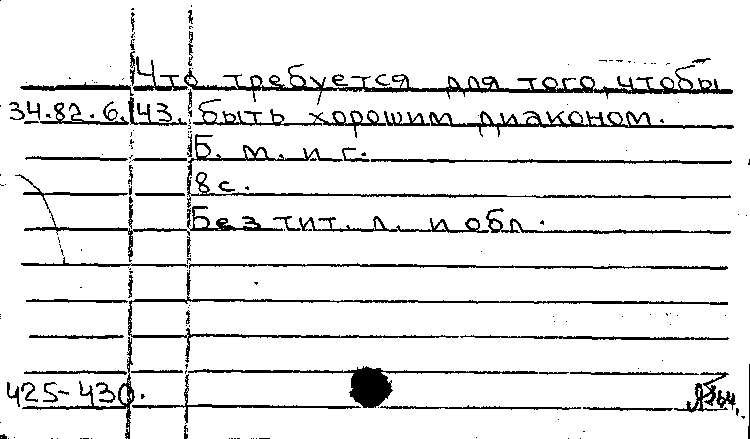 Что требуется для того, чтобы
34.82.6.143. быть хорошим диаконом.
Б. м. и г.
8 с.
Без тит. л. и обл.
425-430.